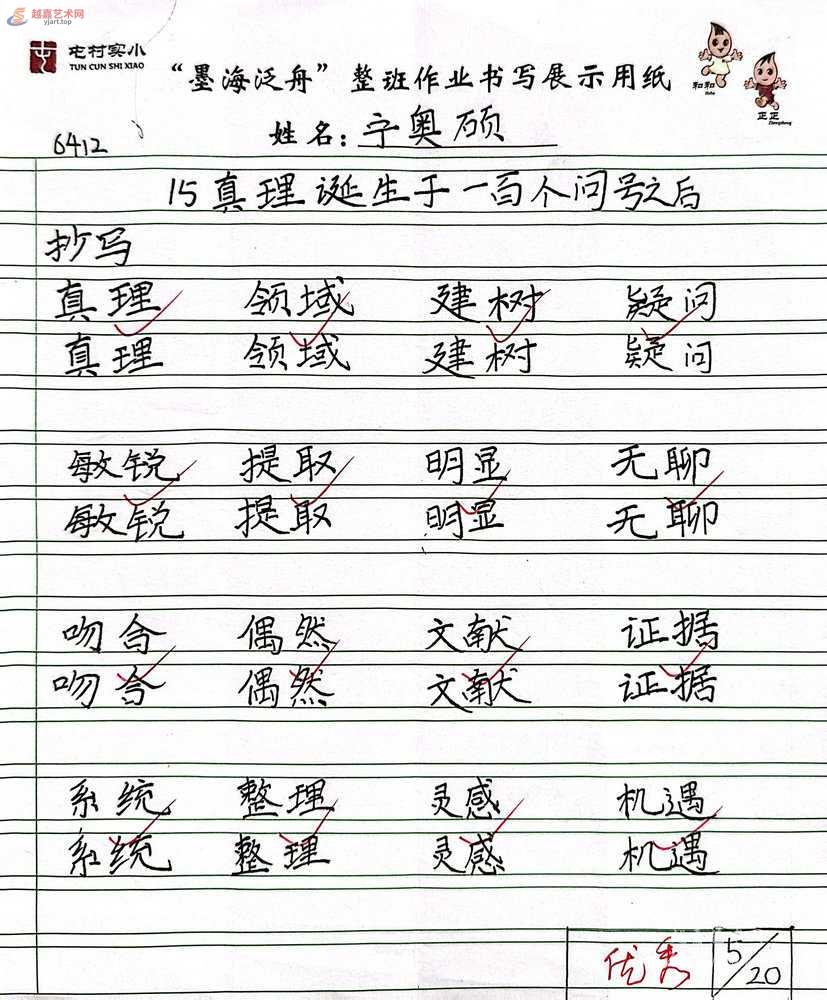 越嘉艺术网
yjart.top
屯村实小
TUN CUN SHI XIAO
“墨海泛舟”整班作业书写展示用纸
和和
Hehe
正正
Zhengzheng
6412
姓名：宁奥硕
15 真理诞生于一百个问号之后
抄写
真理 领域 建树 疑问
真理 领域 建树 疑问
敏锐 提取 明显 无聊
敏锐 提取 明显 无聊
吻合 偶然 文献 证据
吻合 偶然 文献 证据
系统 整理 灵感 机遇
系统 整理 灵感 机遇
优秀 5/20